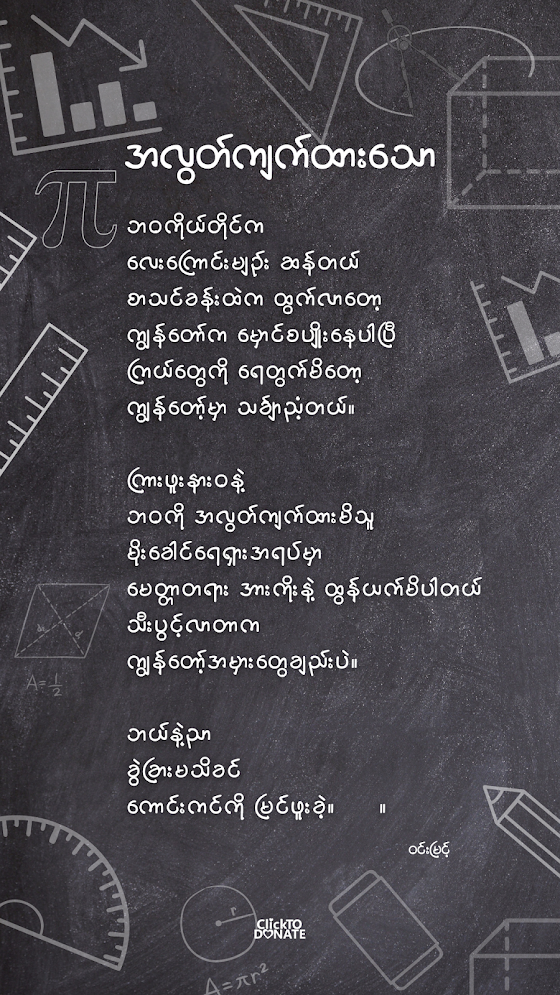 အလွတ်ကျက်ထားသော
ဘဝကိုယ်တိုင်က
လေးကြောင်းမျဉ်း ဆန်တယ်
စာသင်ခန်းထဲက ထွက်လာတော့
ကျွန်တော်က မှောင်စပျိုးနေပါပြီ
ကြယ်တွေကို ရေတွက်မိတော့
ကျွန်တော့်မှာ သင်္ချာညံ့တယ်။
ကြားဖူးနားဝနဲ့
ဘဝကို အလွတ်ကျက်ထားမိသူ
မိုးခေါင်ရေရှားအရပ်မှာ
မေတ္တာတရား အားကိုးနဲ့ ထွန်ယက်မိပါတယ်
သီးပွင့်လာတာက
ကျွန်တော့်အမှားတွေချည်းပဲ။
ဘယ်နဲ့ညာ
ခွဲခြားမသိခင်
ကောင်းကင်ကို မြင်ဖူးခဲ့။ ။
ဝင်းမြင့်
π
A=½
r
CLICK TO
DONATE
A=πr²